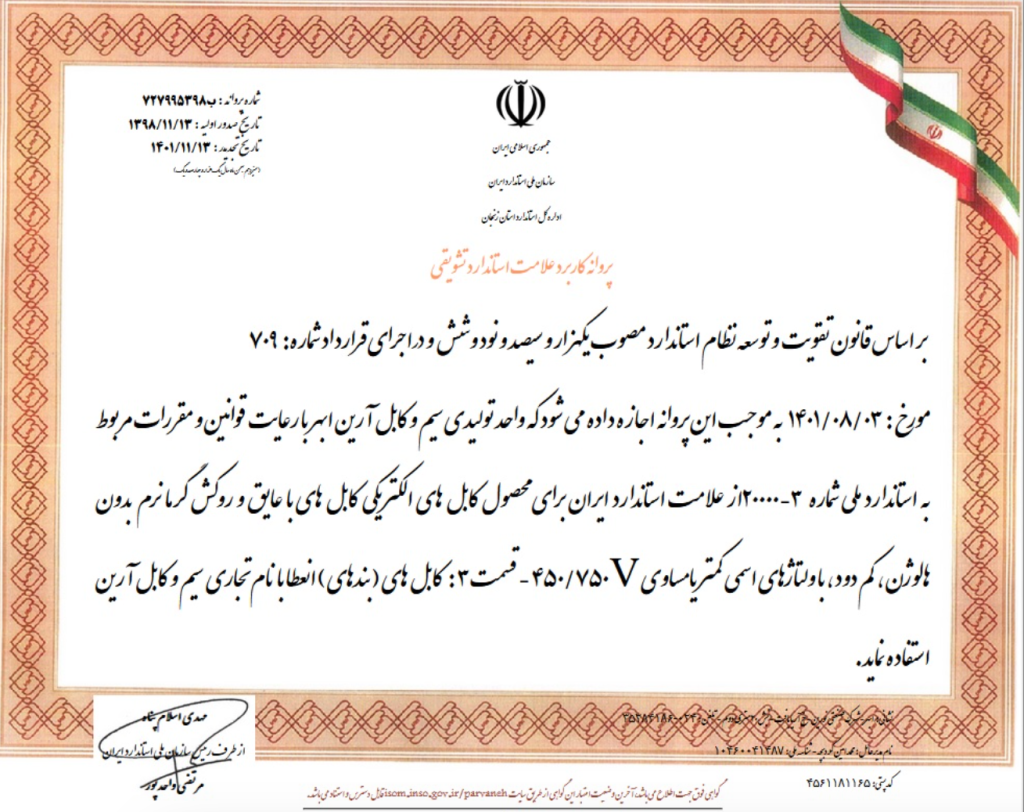 شماره پروانه : ب۷۲۷۹۹۵۳۹۸
تاریخ صدور اولیه : ۱۳۹۸/۱۱/۱۳
تاریخ تجدید : ۱۴۰۱/۱۱/۱۳
جمهوری اسلامی ایران
سازمان ملی استاندارد ایران
اداره کل استاندارد استان زنجان
پروانه کاربرد علامت استاندارد تشویقی
بر اساس قانون تقویت و توسعه نظام استاندارد مصوب یکهزار و سیصد و نود و شش و در اجرای قرارداد شماره : ۷۰۹
مورخ : ۱۴۰۱/۰۸/۰۳ به موجب این پروانه اجازه داده می شود که واحد تولیدی سیم و کابل آرین ابهر با رعایت قوانین و مقررات مربوط
به استاندارد ملی شماره ۳-۲۰۰۰۰ از علامت استاندارد ایران برای محصول کابل های الکتریکی کابل های با عایق و روکش گرمانرم بدون
هالوژن، کم دود، با ولتاژهای اسمی کمتر یا مساوی ۴۵۰/۷۵۰V - قسمت ۳ : کابل های (بندهای) انعطا با نام تجاری سیم و کابل آرین
استفاده نماید.
مهدی اسلام پناه
از طرف رئیس سازمان ملی استاندارد ایران
مرتضی واحدپور
نام مدیرعامل : - شناسه ملی : ۱۰۴۶۰۰۴۱۴۸۷
کد پستی : ۴۵۶۱۱۸۱۱۶۵
گواهی فوق جهت اطلاع می باشد، آخرین وضعیت اعتبار این گواهی از طریق سایت isom.inso.gov.ir/parvaneh قابل دسترس و استناد می باشد.